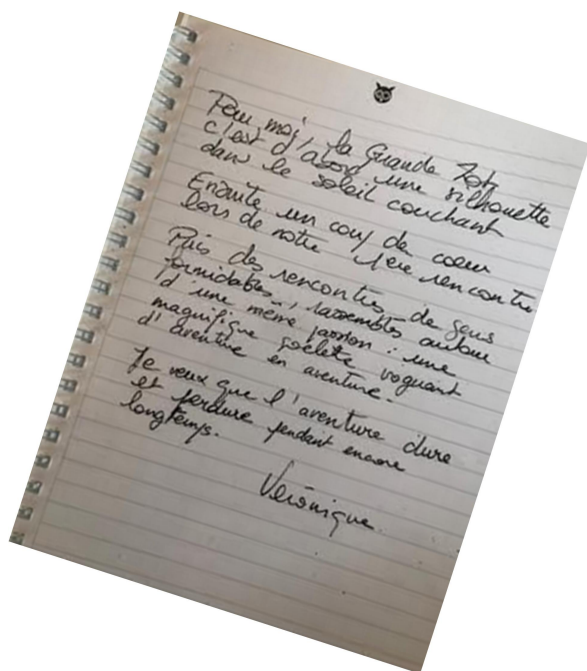 Pour moi, la Grande Zot,
c'est d'abord une silhouette
dans le soleil couchant
Ensuite un coup de coeur
lors de notre 1ère rencontre.
Puis des rencontres de gens
formidables, rassemblés autour
d'une même passion : une
magnifique goélette voguant
d'aventure en aventure.
Je veux que l'aventure dure
et perdure pendant encore
longtemps.
Véronique.